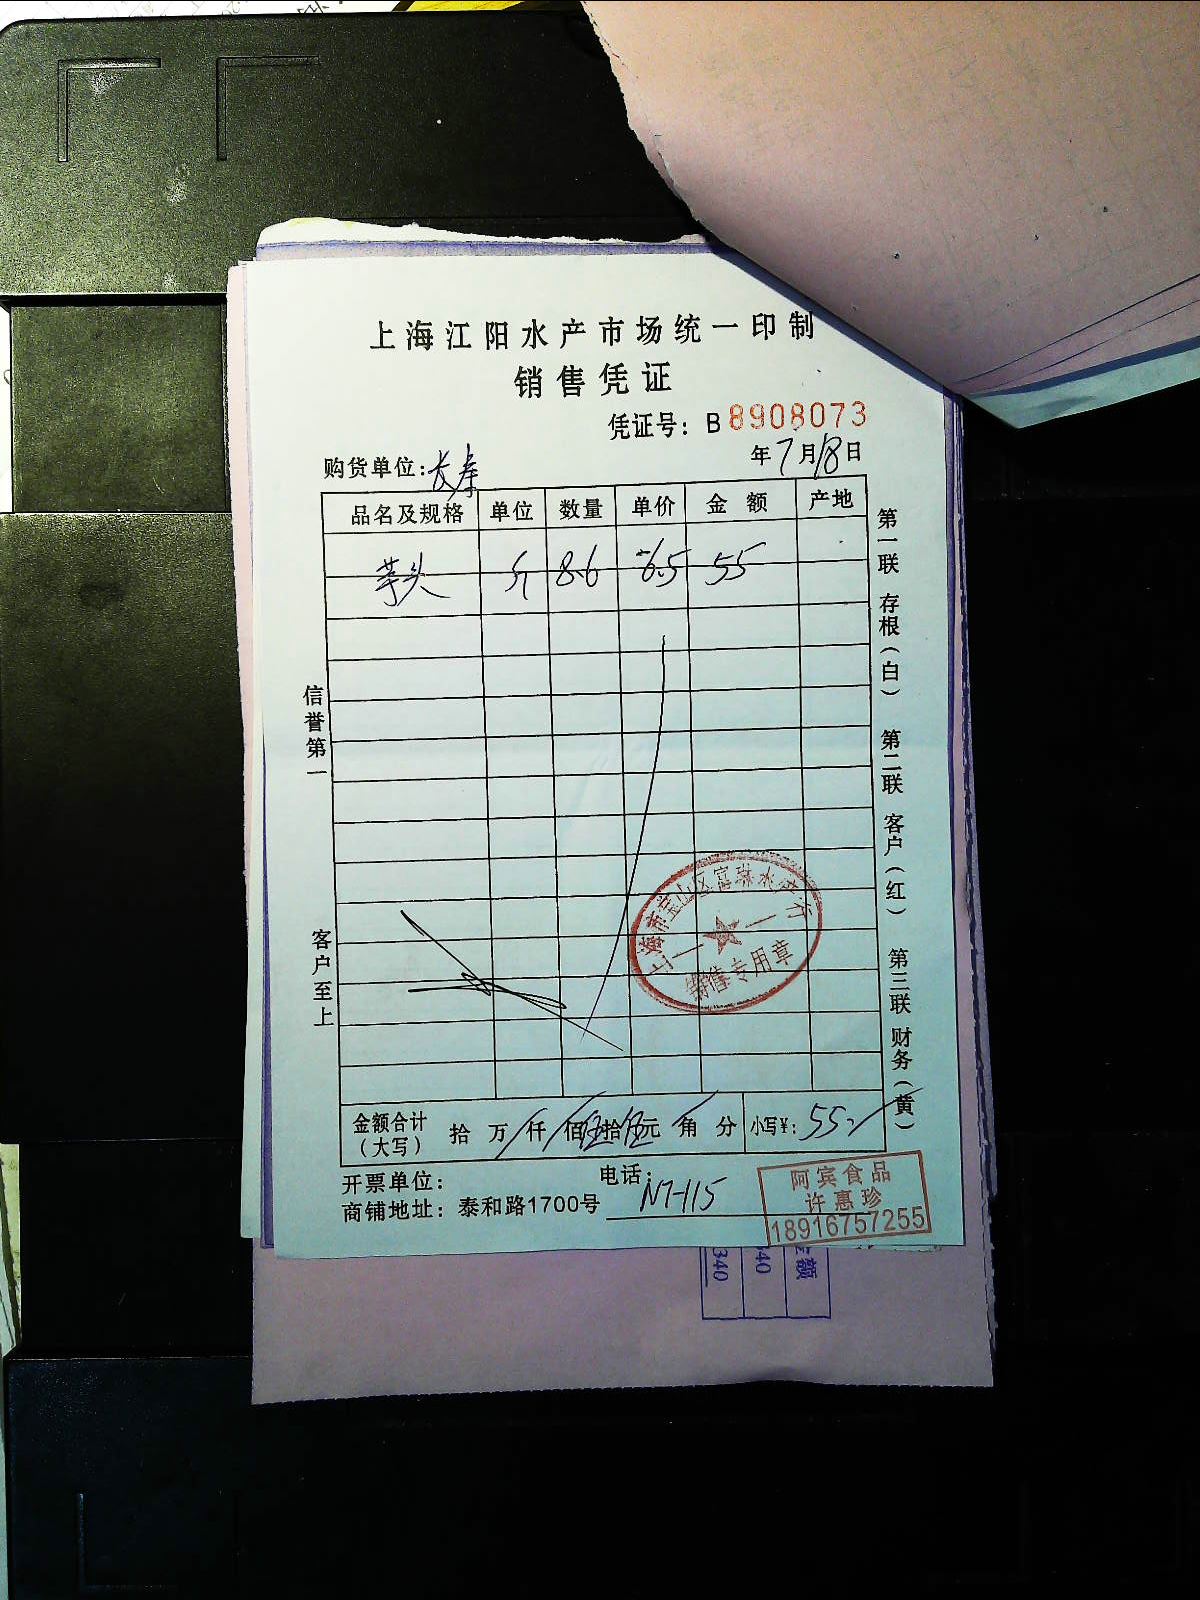 上海江阳水产市场统一印制
销售凭证
凭证号：B 8908073
购货单位：长寿
年7月18日
品名及规格 单位 数量 单价 金额 产地
芋头 斤 8.6 6.5 55
信誉第一
客户至上
第一联 存根（白） 第二联 客户（红） 第三联 财务（黄）
上海市宝山区富琳水产行
销售专用章
金额合计（大写） 拾 万 仟 佰 伍拾 伍元 角 分 小写¥：55
开票单位：
电话：
商铺地址：泰和路1700号 N7-115
阿宾食品
许惠珍
18916757255
金额
340
340